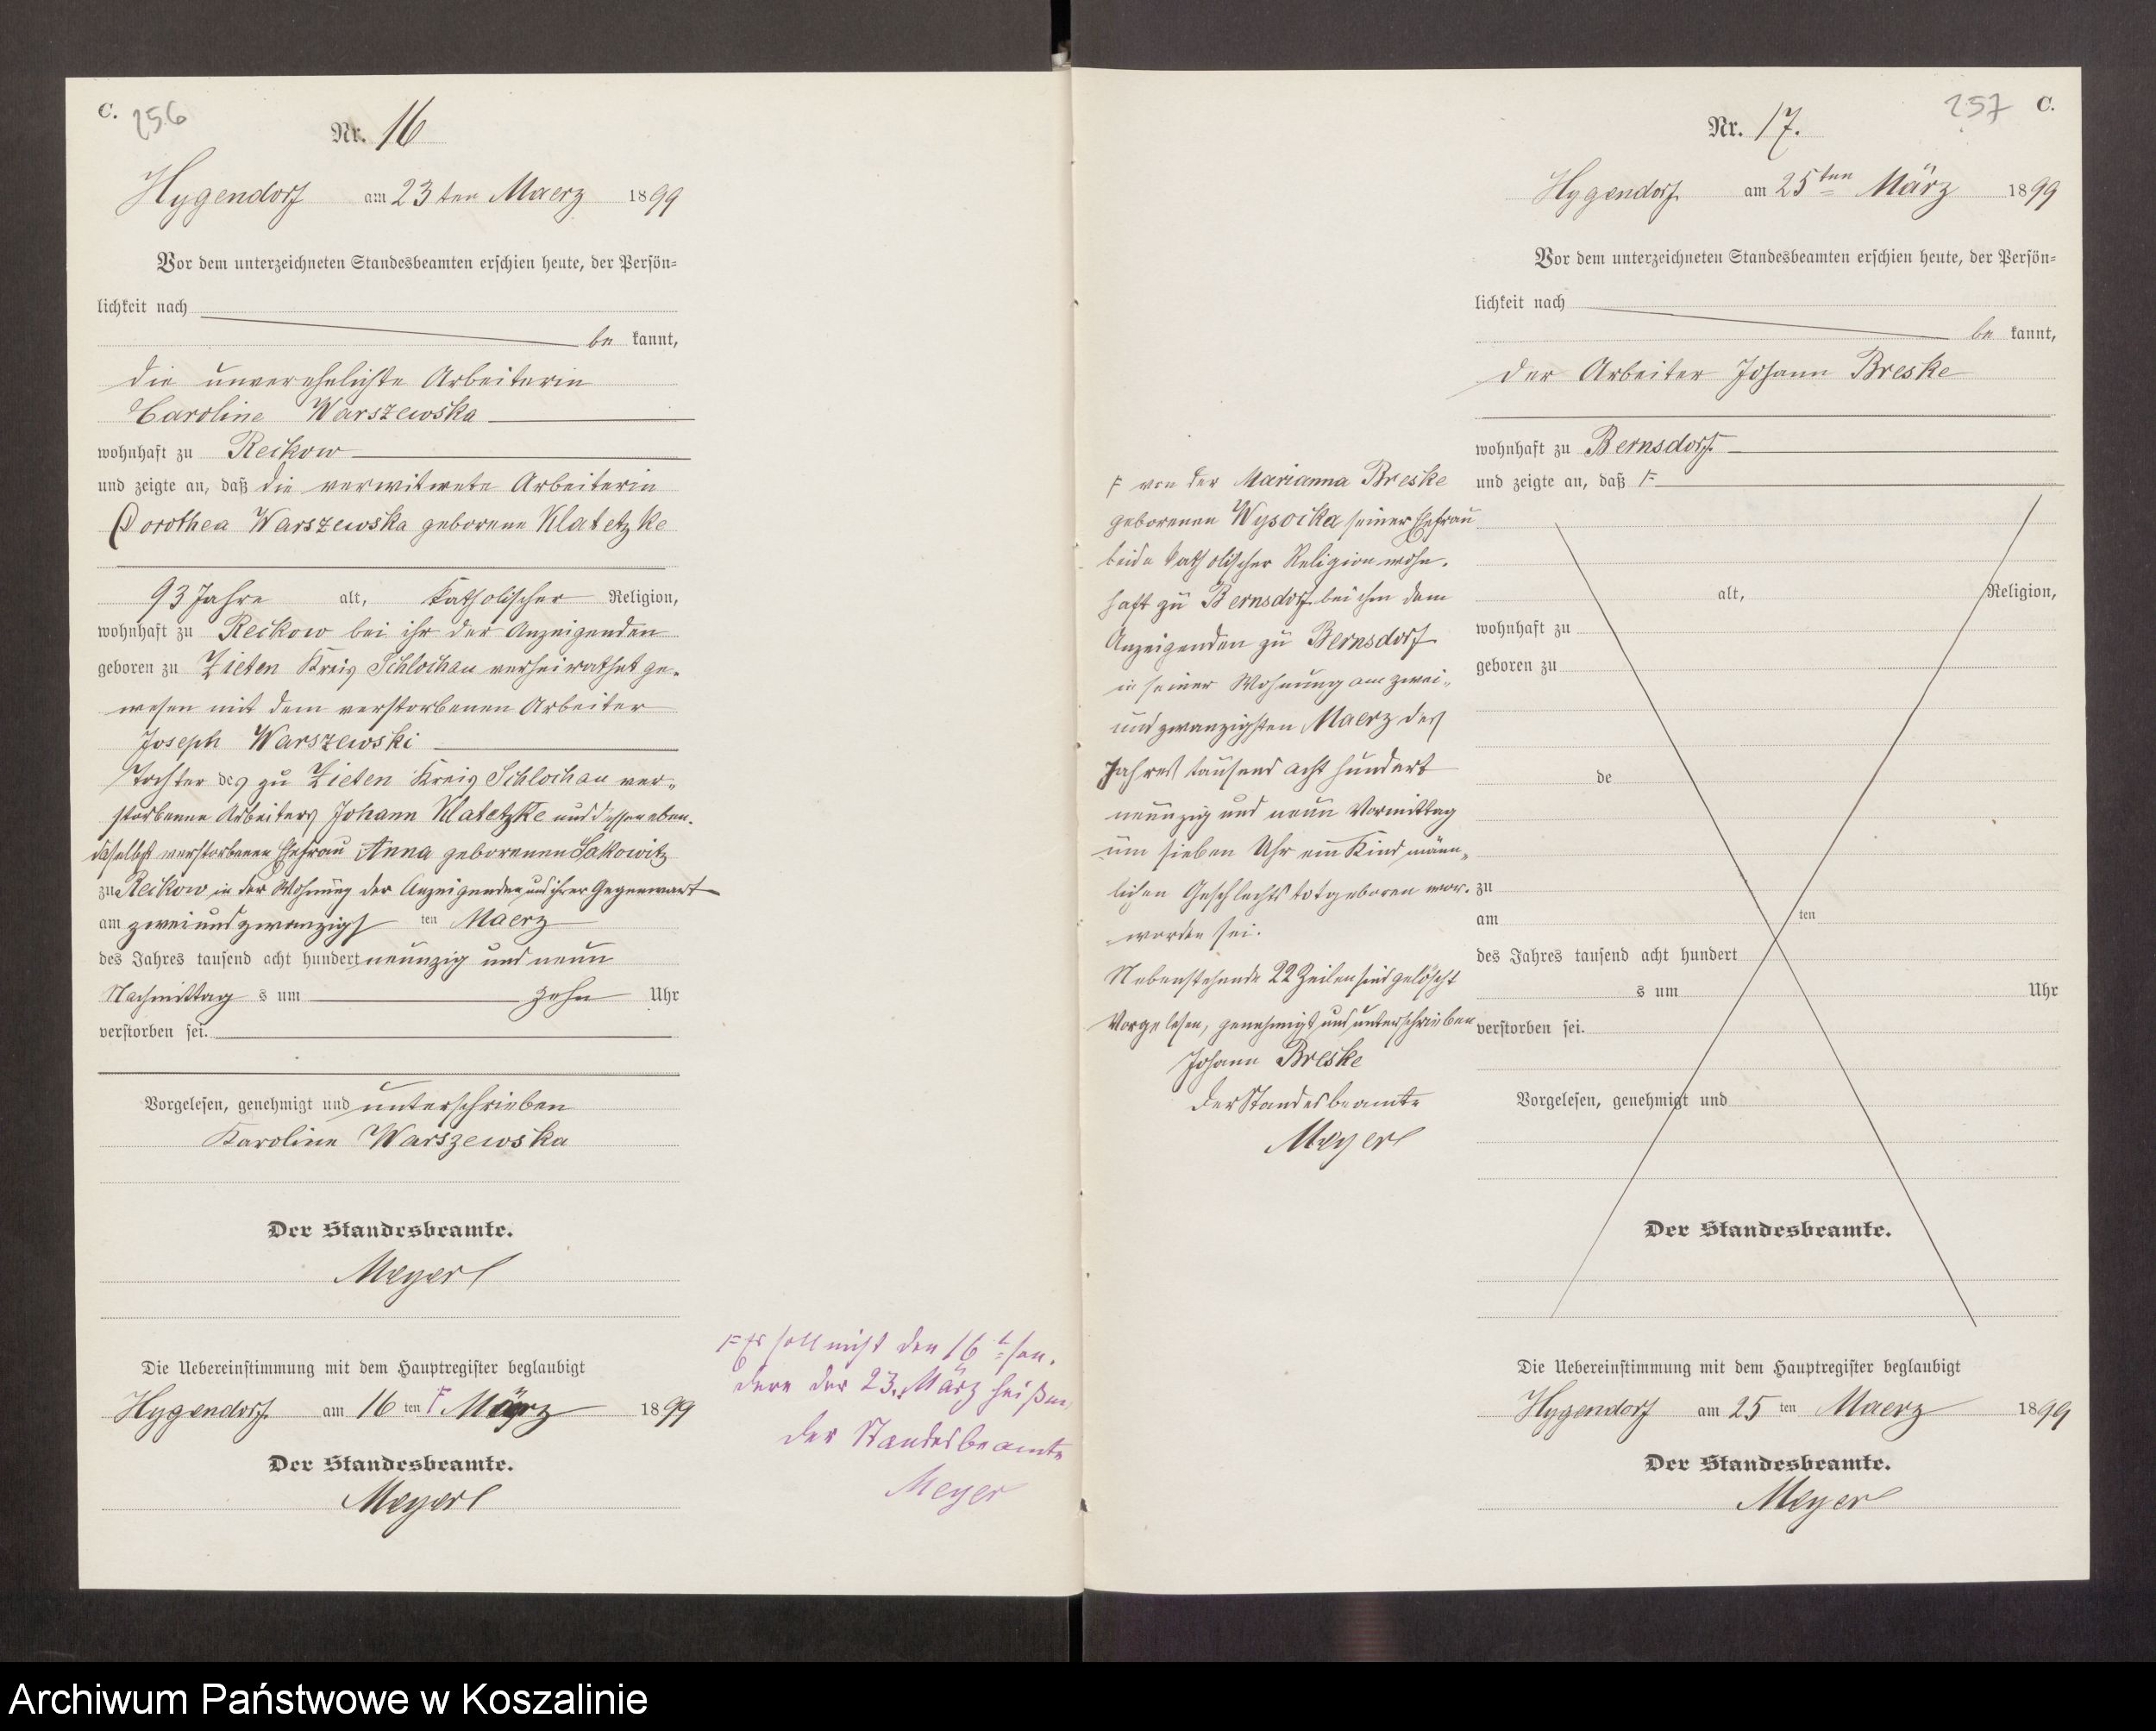 C. 256
Nr. 16
Hygendorf am 23 ten Maerz 1899
Vor dem unterzeichneten Standesbeamten erschien heute, der Persön-
lichkeit nach
be kannt,
die unverehelichte Arbeiterin
Caroline Warszewska
wohnhaft zu Reckow
und zeigte an, daß die verwitwete Arbeiterin
Dorothea Warszewska geborene Klatetzke
93 Jahre alt, katholischer Religion,
wohnhaft zu Reckow bei ihr der Anzeigenden
geboren zu Zieten Kreis Schlochau verheirathet ge-
wesen mit dem verstorbenen Arbeiter
Joseph Warszewski
Tochter des zu Zieten Kreis Schlochau ver-
storbenen Arbeiters Johann Klatetzke und dessen eben-
daselbst verstorbenen Ehefrau Anna geborenen Sakowitz
zu Reckow in der Wohnung der Anzeigenden und ihrer Gegenwart
am zweiundzwanzigs ten Maerz
des Jahres tausend acht hundert neunzig und neun
Nachmittag s um zehn Uhr
verstorben sei.
Vorgelesen, genehmigt und unterschrieben
Karoline Warszewska
Der Standesbeamte.
Meyer
Die Uebereinstimmung mit dem Hauptregister beglaubigt
Hygendorf am 16 ten F März 1899
Der Standesbeamte.
Meyer
F Es soll nicht den 16t. son-
dern der 23. März heißen
Der Standesbeamte
Meyer
257 C.
Nr. 17.
Hygendorf am 25ten März 1899
Vor dem unterzeichneten Standesbeamten erschien heute, der Persön-
lichkeit nach
be kannt,
der Arbeiter Johann Breske
wohnhaft zu Bernsdorf
und zeigte an, daß F
F von der Marianna Breske
geborenen Wysocka seiner Ehefrau
beide katholischer Religion wohn-
haft zu Bernsdorf bei ihm dem
Anzeigenden zu Bernsdorf
in seiner Wohnung am zwei-
und zwanzigsten Maerz des
Jahres tausend acht hundert
neunzig und neun Vormittag
um sieben Uhr ein Kind männ-
lichen Geschlechts totgeboren wor-
worden sei.
Nebenstehende 22 Zeilen sind gelöscht
Vorgelesen, genehmigt und unterschrieben
Johann Breske
Der Standesbeamte
Meyer
alt, Religion,
wohnhaft zu
geboren zu
de
zu
am ten
des Jahres tausend acht hundert
s um Uhr
verstorben sei.
Vorgelesen, genehmigt und
Der Standesbeamte.
Die Uebereinstimmung mit dem Hauptregister beglaubigt
Hygendorf am 25 ten Maerz 1899
Der Standesbeamte.
Meyer
Archiwum Państwowe w Koszalinie